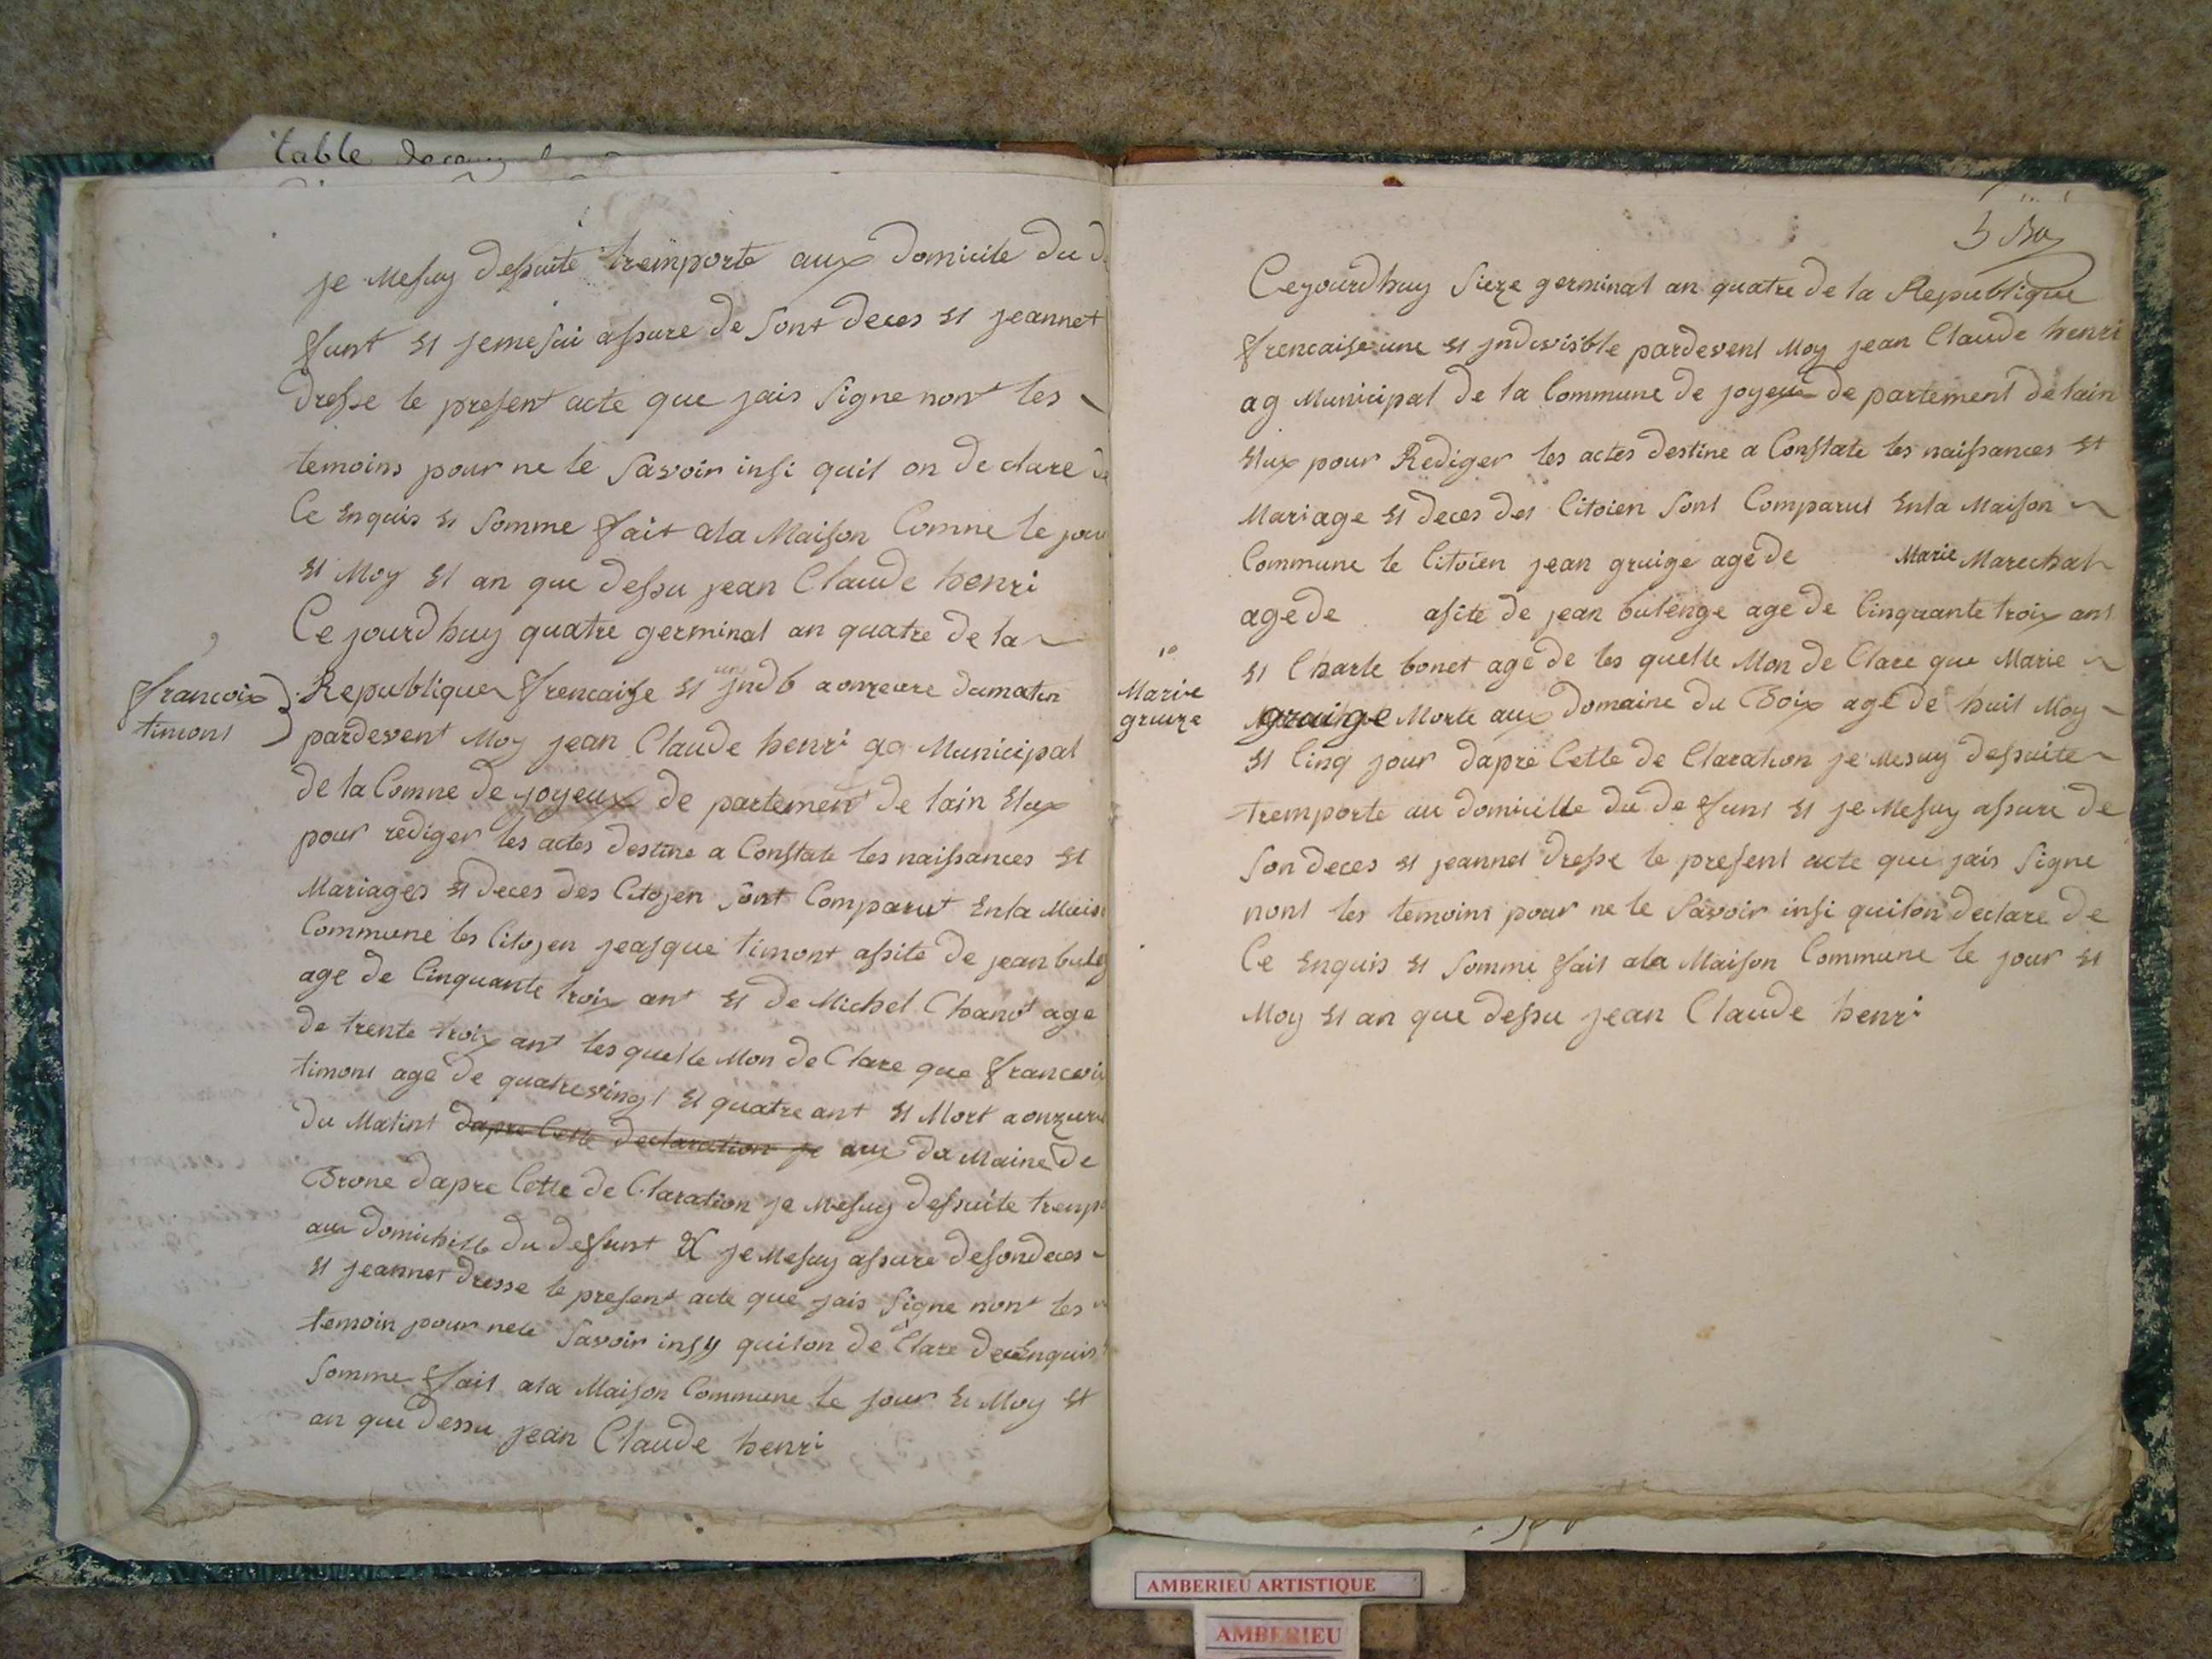 table
je mesuy dessuite tremporte aux domicile du d
funt et jemesui assure de sont deces et jeannet
dresse le present acte que jais signe nont les
temoins pour ne le savoir insi quil on declare de
ce enquis et somme fait ala maison comne le jour
et moy et an que dessu jean claude henri
Ce jourdhuy quatre germinal an quatre de la
francoix
timont
Republique frencaise et un jndb aonzeure dumatin
pardevent moy jean claude henri ag municipal
de la comne de joyeux de partement de lain elux
pour rediger les actes destine a constate les naissances et
mariages et deces des citoyen sont comparut enla mais
commune les citoyen jeasque timont assite de jean bule
age de cinquante troix ant et de michel chanot age
de trente troix ant lesquelle mon de clare que francoi
timont age de quatrevingt et quatre ant et mort aonzure
du matint dapre cette declaration je aux da maine de
Brone dapre cette de claration je mesuy dessuite tremp
aux domichille du defunt et je mesuy assure desondeces
et jeannet dresse le present acte que jais signe nont les
temoin pour nele savoir insy quilon de clare dece enquis
somme fait ala maison commune le jour et moy et
an que dessu jean claude henri
5
Cejourdhuy sieze germinal an quatre de la Republique
frencaise une et jndivisible pardevent moy jean claude henri
ag municipal de la commune de joyeux de partement de lain
elux pour Rediger les actes destine a constate les naissances et
mariage et deces des citoien sont comparut enla maison
commune le citoien jean gruige age de marie marechal
age de assite de jean bulenge age de cinquante troix ant
et charle bonet age de les quelle mon de clare que marie
marie
gruize
gruige morte aux domaine du Boix age de huit moy
et cinq jour dapre cette de claration je mesuy dessuite
tremporte au domicille du de funt et je mesuy assure de
son deces et jeannet dresse le present acte que jais signe
nont les temoint pour ne le savoir insi quilon declare de
ce enquis et somme fait ala maison commune le jour et
moy et an que dessu jean claude henri
AMBERIEU ARTISTIQUE
AMBERIEU